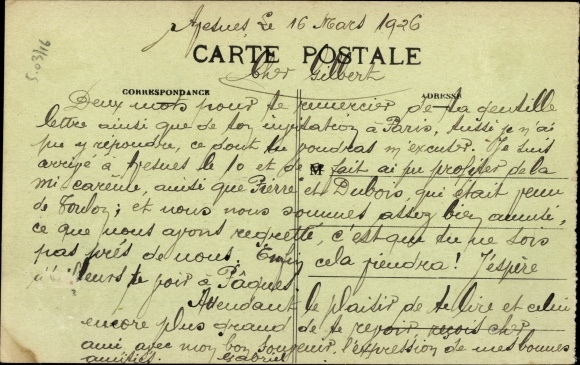 Avesnes, Le 16 Mars 1926
CARTE POSTALE
Cher Gilbert
CORRESPONDANCE
ADRESSE
5.03/16
Deux mots pour te remercier de ta gentille
lettre ainsi que de ton invitation à Paris, aussi je n'ai
pu y répondre, ce dont tu voudras m'excuser. Je suis
arrivé à Avesnes le 10 et de M fait ai pu profiter de la
mi-carême, ainsi que Pierre et Dubois, qui était venu
de Toulon; et nous nous sommes assez bien amusé,
ce que nous avons regretté, c'est que tu ne sois
pas près de nous. Enfin cela viendra! J'espère
d'ailleurs te voir à Pâques
Attendant le plaisir de te lire et celui
encore plus grand de te revoir reçois cher
ami avec mon bon souvenir, l'expression de mes bonnes
amitiés. Gabriel